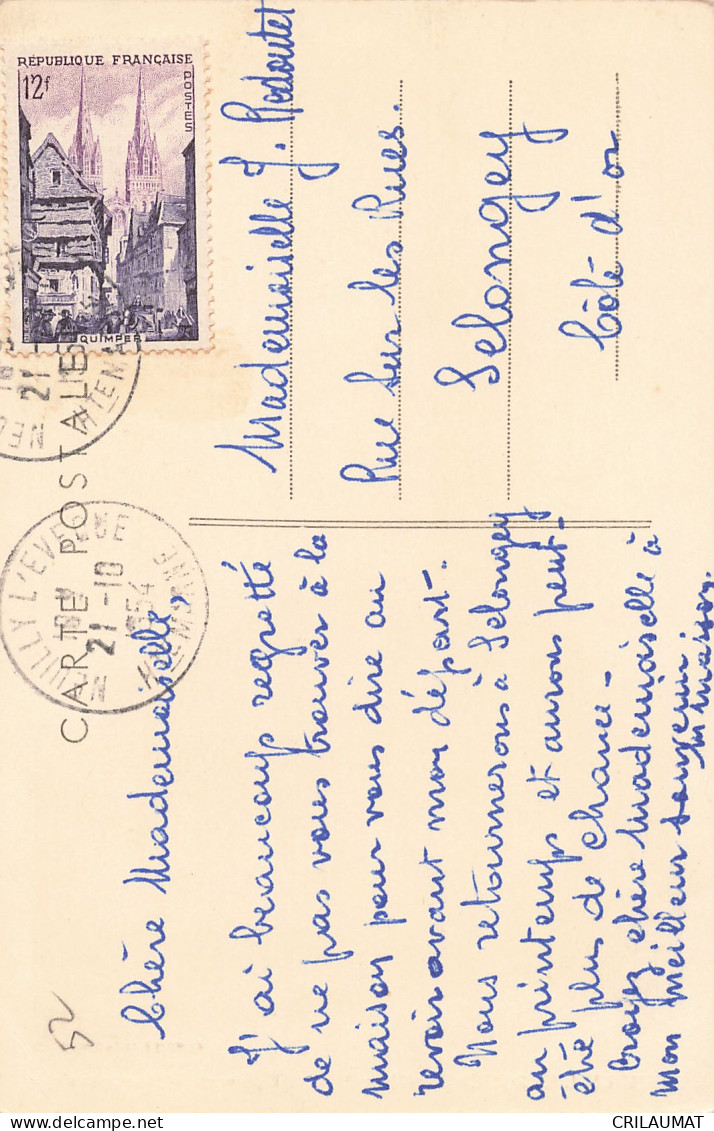 RÉPUBLIQUE FRANÇAISE
12f
POSTES
QUIMPER
CARTE POSTALE
NEUILLY L'EVEQUE
21-10
1954
HTE MARNE
Mademoiselle J. Redoutet
Rue sur les Rues.
Selongey
Côte d'or
Chère Mademoiselle,
J'ai beaucoup regretté
de ne pas vous trouver à la
maison pour vous dire au
revoir avant mon départ-.
Nous retournerons à Selongey
au printemps et aurons peut-
été plus de chance-
Croyez chère Mademoiselle à
mon meilleur souvenir.
M Masson.
52
CRILAUMAT